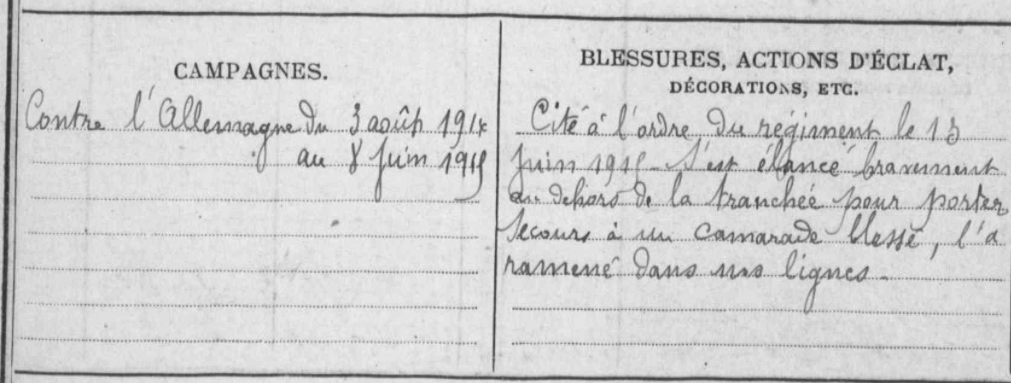 CAMPAGNES.
Contre l'Allemagne du 3 août 1914
au 8 Juin 1915
BLESSURES, ACTIONS D'ÉCLAT,
DÉCORATIONS, ETC.
Cité à l'ordre du régiment le 13
Juin 1915 - S'est élancé bravement
au dehors de la tranchée pour porter
secours à un camarade blessé, l'a
ramené dans nos lignes -